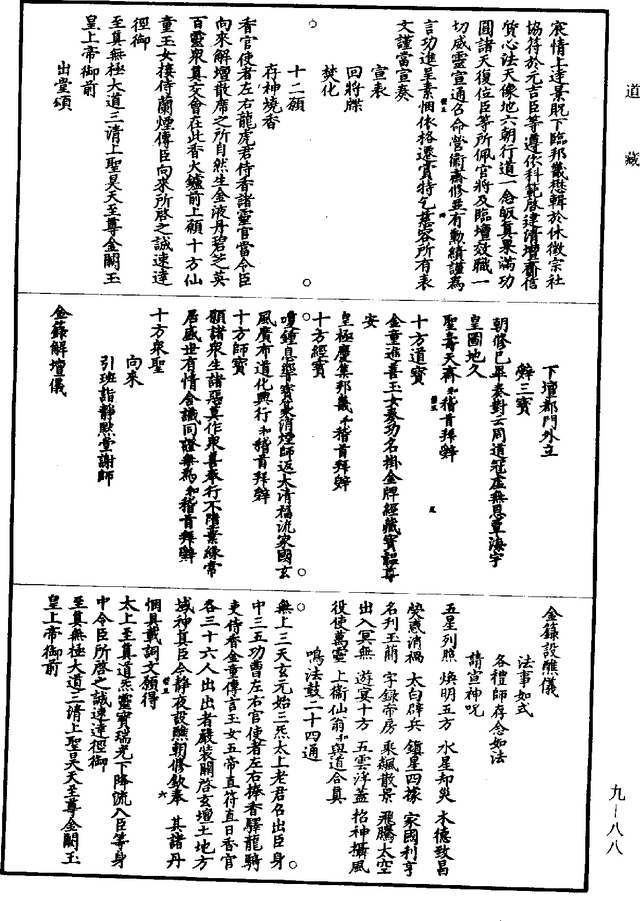 道藏
宸情上達景貺下臨邦畿懋輯於休徵宗社
協符於元吉臣等遵依科範啓建清壇齋信
質心法天像地六朝行道一念皈真果滿功
圓諸天復位臣等所佩官將及臨壇效職一
切威靈宣通召命營衛齋修並有勳績謹為
言功進呈素悃依格遷賞特乞慈容所有表
文謹當宣奏
宣表
回將牒
焚化
十二願
存神燒香
香官使者左右龍虎君侍香諸靈官當令臣
向來解壇散席之所自然生金液丹碧芝英
百靈眾真交會在此香火鑪前上願十方仙
童玉女接侍蘭煙傳臣向來所啓之誠速達
徑御
至真無極大道三清上聖昊天至尊金闕玉
皇上帝御前
出堂頌
下壇都門外立
辭三寶
朝修已畢奏對云周道冠虛無恩覃海宇
皇圖地久
聖壽天齊和稽首拜辭
十方道寶
金童進善玉女奏功名掛金牌經藏寶韞尊
安
皇極慶集邦畿和稽首拜辭
十方經寶
瓊鍾息響寶篆消煙師返太清福流家國玄
風廣布道化興行和稽首拜辭
十方師寶
願諸眾生諸惡莫作眾善奉行不隋業緣常
居盛世有情含識同證無為和稽首拜辭
十方眾聖
向來
引班詣靜默堂謝師
金籙解壇儀
金籙設醮儀
法事如式
各禮師存念如法
請宣神呪
五星列照 煥明五方 水星却災 木德致昌
熒惑消禍 太白辟兵 鎮星四據 家國利亨
名刊玉簡 字錄帝房 乘飆散景 飛騰太空
出入冥無 遊宴十方 五雲浮蓋 招神攝風
役使萬靈 上衛仙翁和與道合真
鳴法鼓二十四通
無上三天玄元始三炁太上老君召出臣身
中三五功曹左右官使者左右捧香驛龍騎
吏侍香金童傳言玉女五帝直符直日香官
各三十六人出出者嚴裝關啓玄壇土地方
域神真臣今靜夜設醮朝修欽奉 其諸丹
悃具載詞文願得
太上至真道炁靈寶瑞光下降流入臣等身
中令臣所啓之誠速達徑御
至真無極大道三清上聖昊天至尊金闕玉
皇上帝御前
九—八八